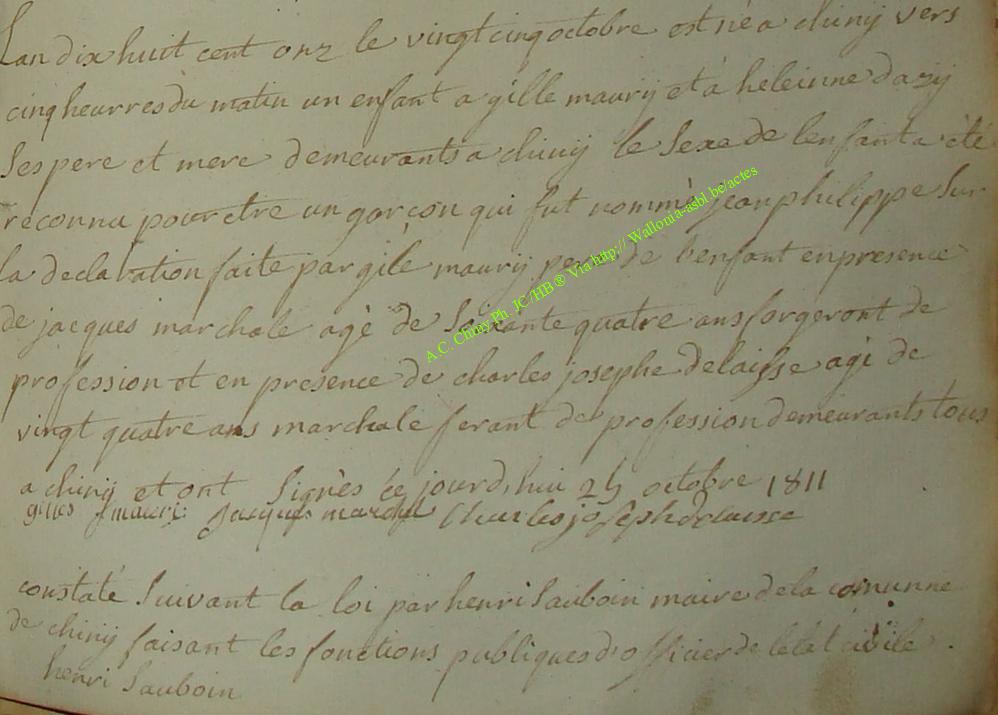 Lan dix huit cent onz le vingt cinq octobre est né a chinij vers
cinq heurres du matin un enfant a gille maurij et à heleinne dazij
Ses pere et mere demeurants a chinij le Sexe de lenfant a été
reconnu pour etre un garcon qui fut nommé jean philippe Sur
la declaration faite par gile maurij pere de l'enfant en presence
de jacques marchale agé de Soixante quatre ans forgeront de
profession et en presence de charles josephe delaisse agé de
vingt quatre ans marchale ferant de profession demeurants tous
a chinij et ont Signès ce jourd,hui 25 octobre 1811
gilles mauri jacques marchal Charles joseph delaisse
constaté Suivant la loi par henri Sauboin maire de la comunne
de chinij faisant les fonctions publiques d'officier de letat civile .
henri Sauboin
A.C. Chiny Ph. JC/HB ® Via http:// Wallonia-asbl.be/actes